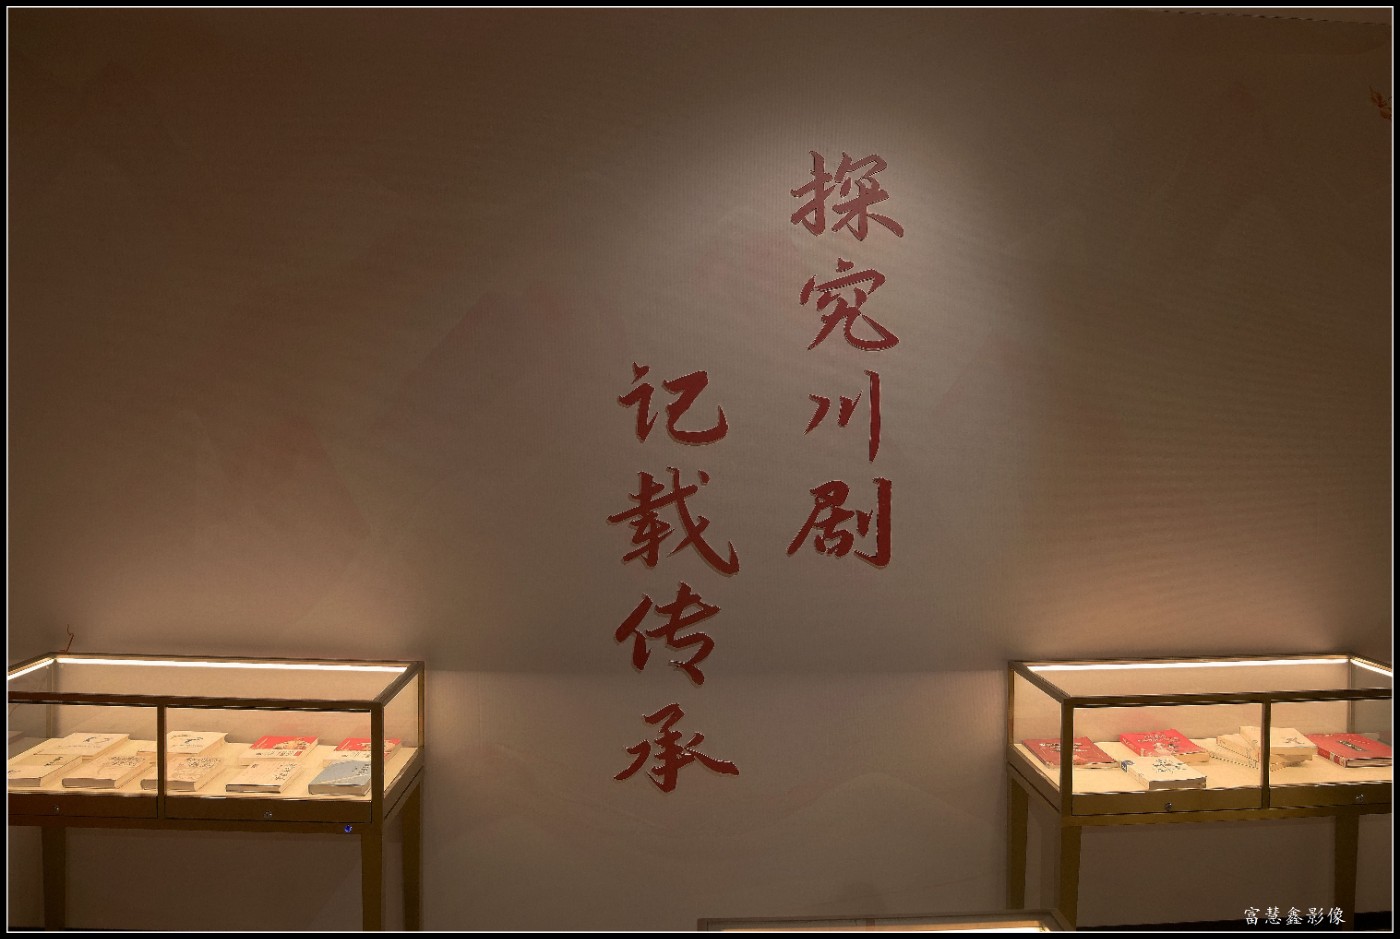 探究川剧
记载传承
富慧鑫影像